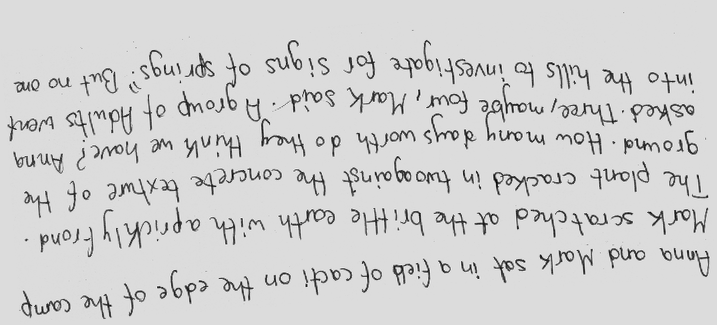 Anna and Mark sat in a field of cacti on the edge of the camp
Mark scratched at the brittle earth with a prickly frond.
The plant cracked in two against the concrete texture of the
ground. How many days worth do they think we have? Anna
asked. Three, maybe four, Mark said. A group of Adults went
into the hills to investigate for signs of springs." But no one